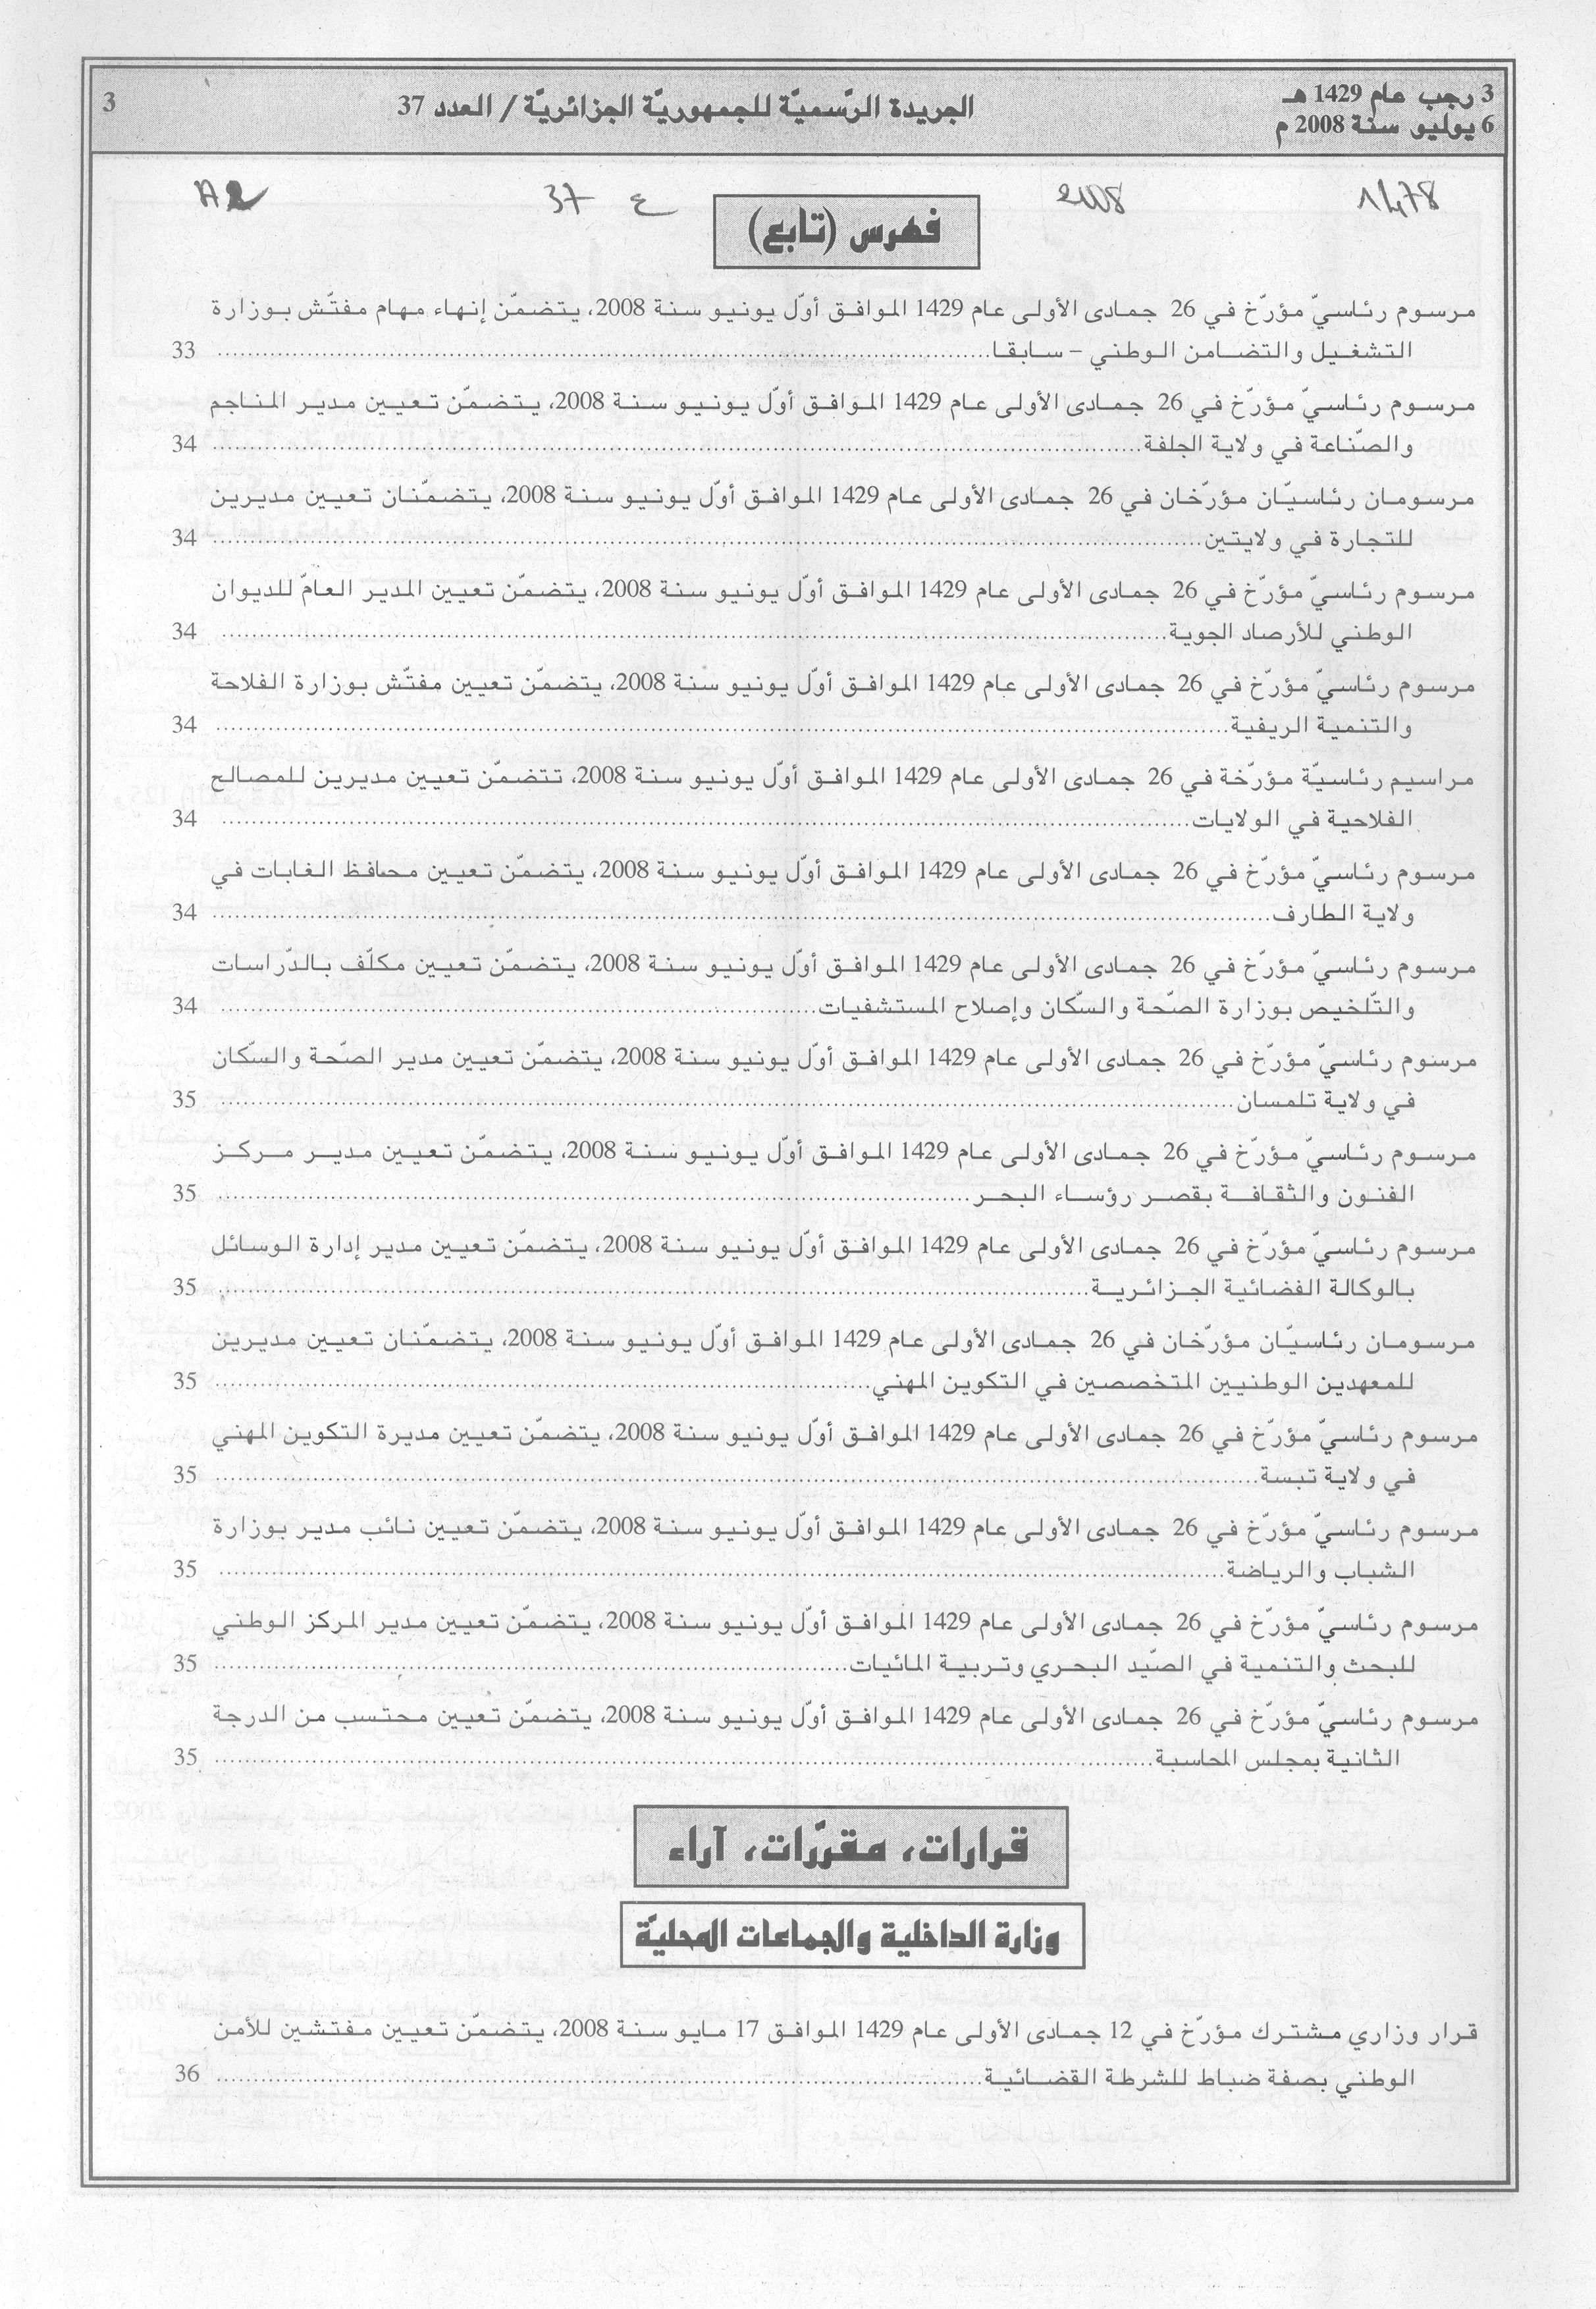 3 رجب عام 1429 هـ
6 يوليو سنة 2008 م
الجريدة الرّسميّة للجمهوريّة الجزائريّة / العدد 37
3
1478 2008 ع 37 A2
فهرس (تابع)
مرسوم رئاسيّ مؤرّخ في 26 جمادى الأولى عام 1429 الموافق أوّل يونيو سنة 2008، يتضمّن إنهاء مهام مفتّش بوزارة
التشغيل والتضامن الوطني – سابقا........................ 33
مرسوم رئاسيّ مؤرّخ في 26 جمادى الأولى عام 1429 الموافق أوّل يونيو سنة 2008، يتضمّن تعيين مدير المناجم
والصّناعة في ولاية الجلفة........................ 34
مرسومان رئاسيّان مؤرّخان في 26 جمادى الأولى عام 1429 الموافق أوّل يونيو سنة 2008، يتضمّنان تعيين مديرين
للتجارة في ولايتين........................ 34
مرسوم رئاسيّ مؤرّخ في 26 جمادى الأولى عام 1429 الموافق أوّل يونيو سنة 2008، يتضمّن تعيين المدير العامّ للديوان
الوطني للأرصاد الجوية........................ 34
مرسوم رئاسيّ مؤرّخ في 26 جمادى الأولى عام 1429 الموافق أوّل يونيو سنة 2008، يتضمّن تعيين مفتّش بوزارة الفلاحة
والتنمية الريفية........................ 34
مراسيم رئاسيّة مؤرّخة في 26 جمادى الأولى عام 1429 الموافق أوّل يونيو سنة 2008، تتضمّن تعيين مديرين للمصالح
الفلاحية في الولايات........................ 34
مرسوم رئاسيّ مؤرّخ في 26 جمادى الأولى عام 1429 الموافق أوّل يونيو سنة 2008، يتضمّن تعيين محافظ الغابات في
ولاية الطارف........................ 34
مرسوم رئاسيّ مؤرّخ في 26 جمادى الأولى عام 1429 الموافق أوّل يونيو سنة 2008، يتضمّن تعيين مكلّف بالدّراسات
والتّلخيص بوزارة الصّحة والسّكان وإصلاح المستشفيات........................ 34
مرسوم رئاسيّ مؤرّخ في 26 جمادى الأولى عام 1429 الموافق أوّل يونيو سنة 2008، يتضمّن تعيين مدير الصّحة والسّكان
في ولاية تلمسان........................ 35
مرسوم رئاسيّ مؤرّخ في 26 جمادى الأولى عام 1429 الموافق أوّل يونيو سنة 2008، يتضمّن تعيين مدير مركز
الفنون والثقافة بقصر رؤساء البحر........................ 35
مرسوم رئاسيّ مؤرّخ في 26 جمادى الأولى عام 1429 الموافق أوّل يونيو سنة 2008، يتضمّن تعيين مدير إدارة الوسائل
بالوكالة الفضائية الجزائرية........................ 35
مرسومان رئاسيّان مؤرّخان في 26 جمادى الأولى عام 1429 الموافق أوّل يونيو سنة 2008، يتضمّنان تعيين مديرين
للمعهدين الوطنيين المتخصصين في التكوين المهني........................ 35
مرسوم رئاسيّ مؤرّخ في 26 جمادى الأولى عام 1429 الموافق أوّل يونيو سنة 2008، يتضمّن تعيين مديرة التكوين المهني
في ولاية تبسة........................ 35
مرسوم رئاسيّ مؤرّخ في 26 جمادى الأولى عام 1429 الموافق أوّل يونيو سنة 2008، يتضمّن تعيين نائب مدير بوزارة
الشباب والرياضة........................ 35
مرسوم رئاسيّ مؤرّخ في 26 جمادى الأولى عام 1429 الموافق أوّل يونيو سنة 2008، يتضمّن تعيين مدير المركز الوطني
للبحث والتنمية في الصّيد البحري وتربية المائيات........................ 35
مرسوم رئاسيّ مؤرّخ في 26 جمادى الأولى عام 1429 الموافق أوّل يونيو سنة 2008، يتضمّن تعيين محتسب من الدرجة
الثانية بمجلس المحاسبة........................ 35
قرارات، مقرّرات، آراء
وزارة الداخلية والجماعات المحليّة
قرار وزاري مشترك مؤرّخ في 12 جمادى الأولى عام 1429 الموافق 17 مايو سنة 2008، يتضمّن تعيين مفتشين للأمن
الوطني بصفة ضباط للشرطة القضائية........................ 36